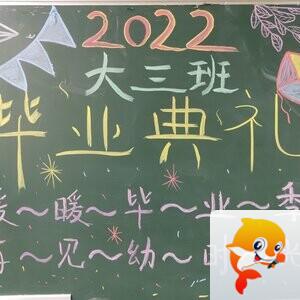 2022
大三班
毕业典礼
暖～暖～毕～业～季
再～见～幼～时光